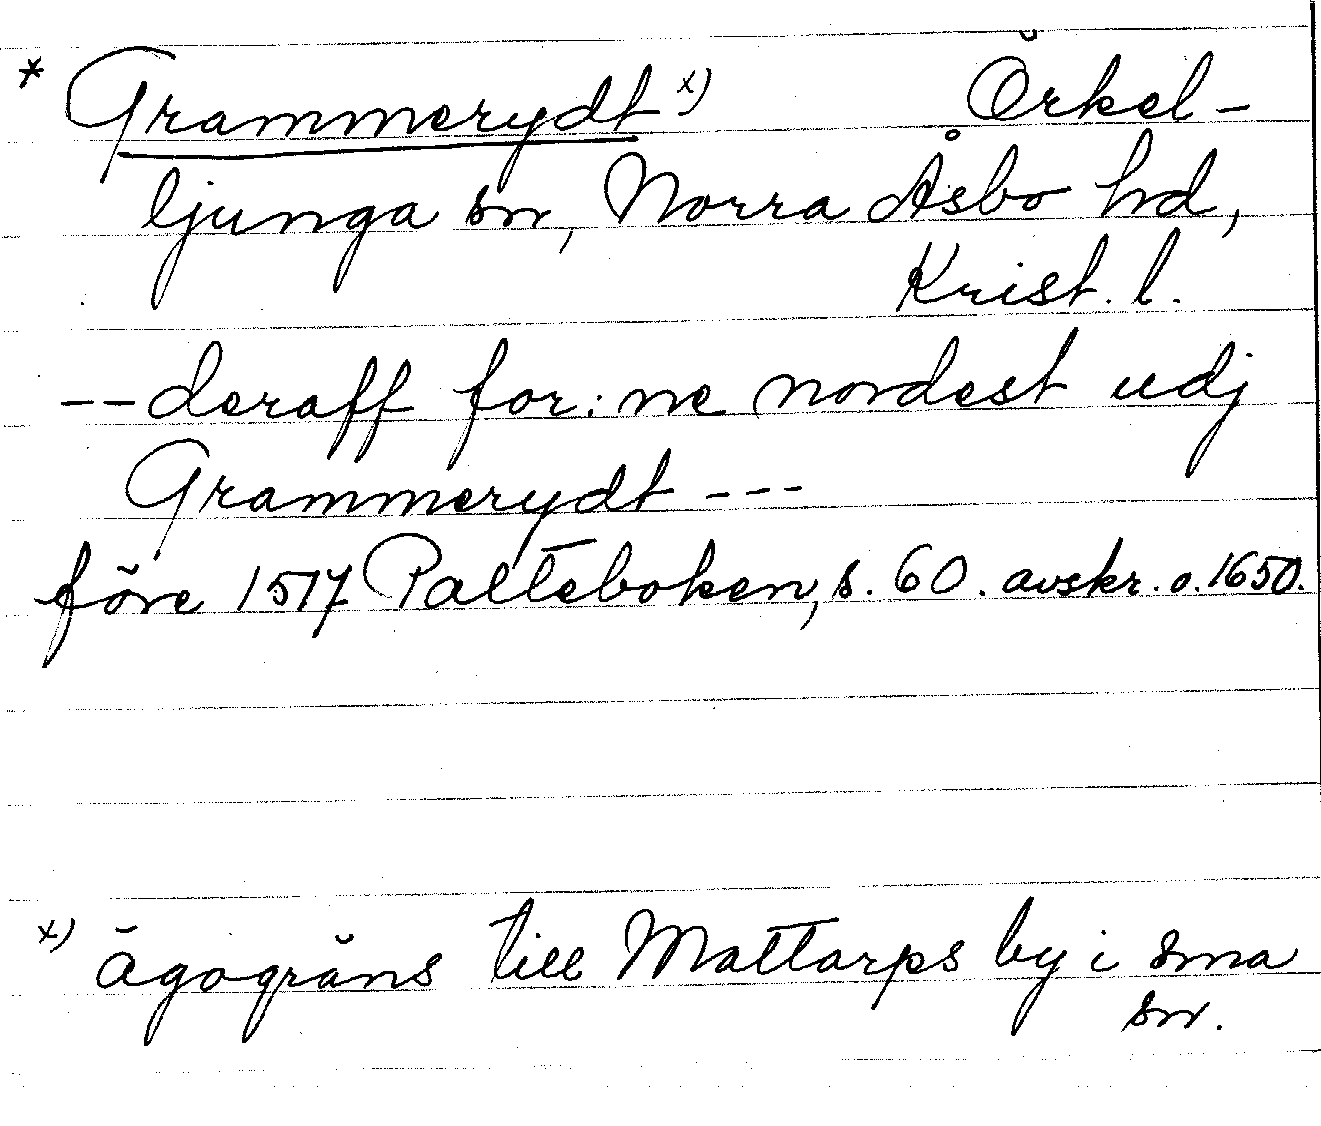 * Grammerydt x) Örkel-
ljunga sn, Norra Åsbo hd,
Krist. l.
-- deraff for: ne nordest udj
Grammerydt ---
före 1517 Palteboken, s. 60. avskr. o. 1650.
x) ägogräns till Mattarps by i sma
sn.